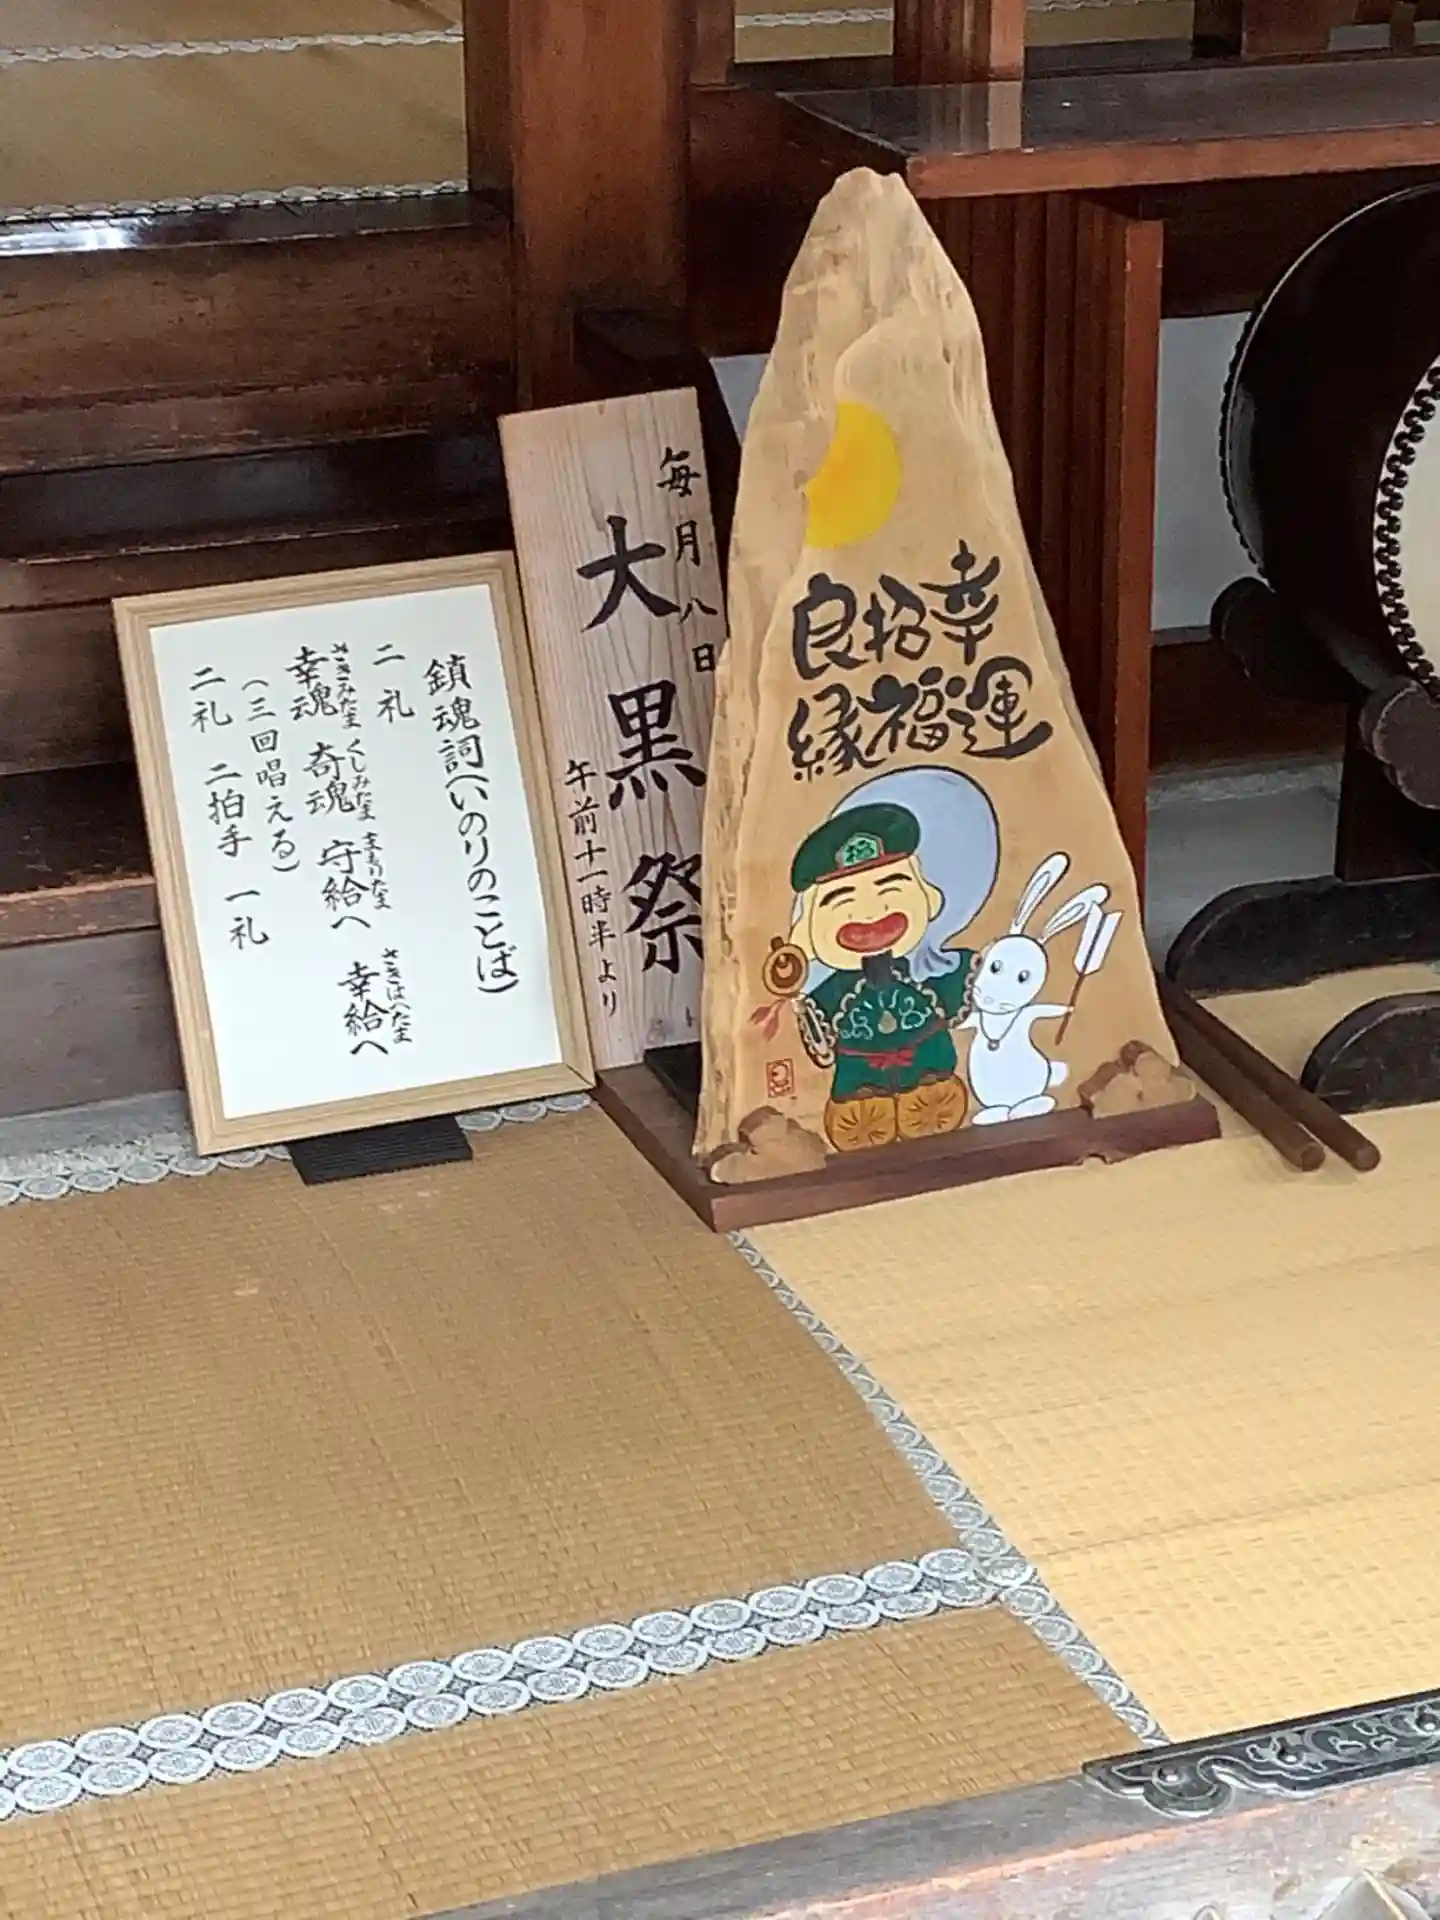 鎮魂詞(いのりのことば)
二礼
幸魂 奇魂 守給へ 幸給へ
さきみたま くしみたま まもりたまへ さきはへたま
(三回唱える)
二礼 二拍手 一礼
毎月八日
大黒祭
午前十一時半より
幸運
招福
良縁
福